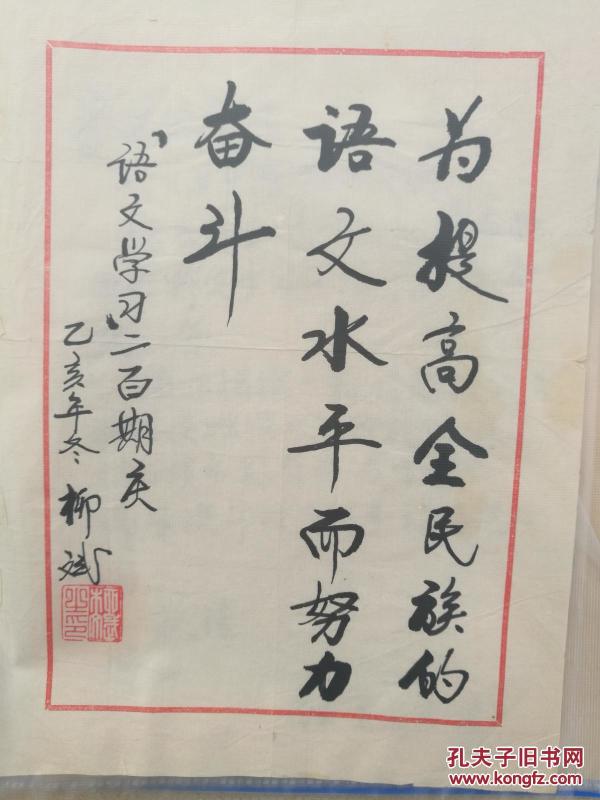 为提高全民族的
语文水平而努力
奋斗
「语文学习」二百期庆
乙亥年冬 柳斌
柳斌之印
孔夫子旧书网
www.kongfz.com